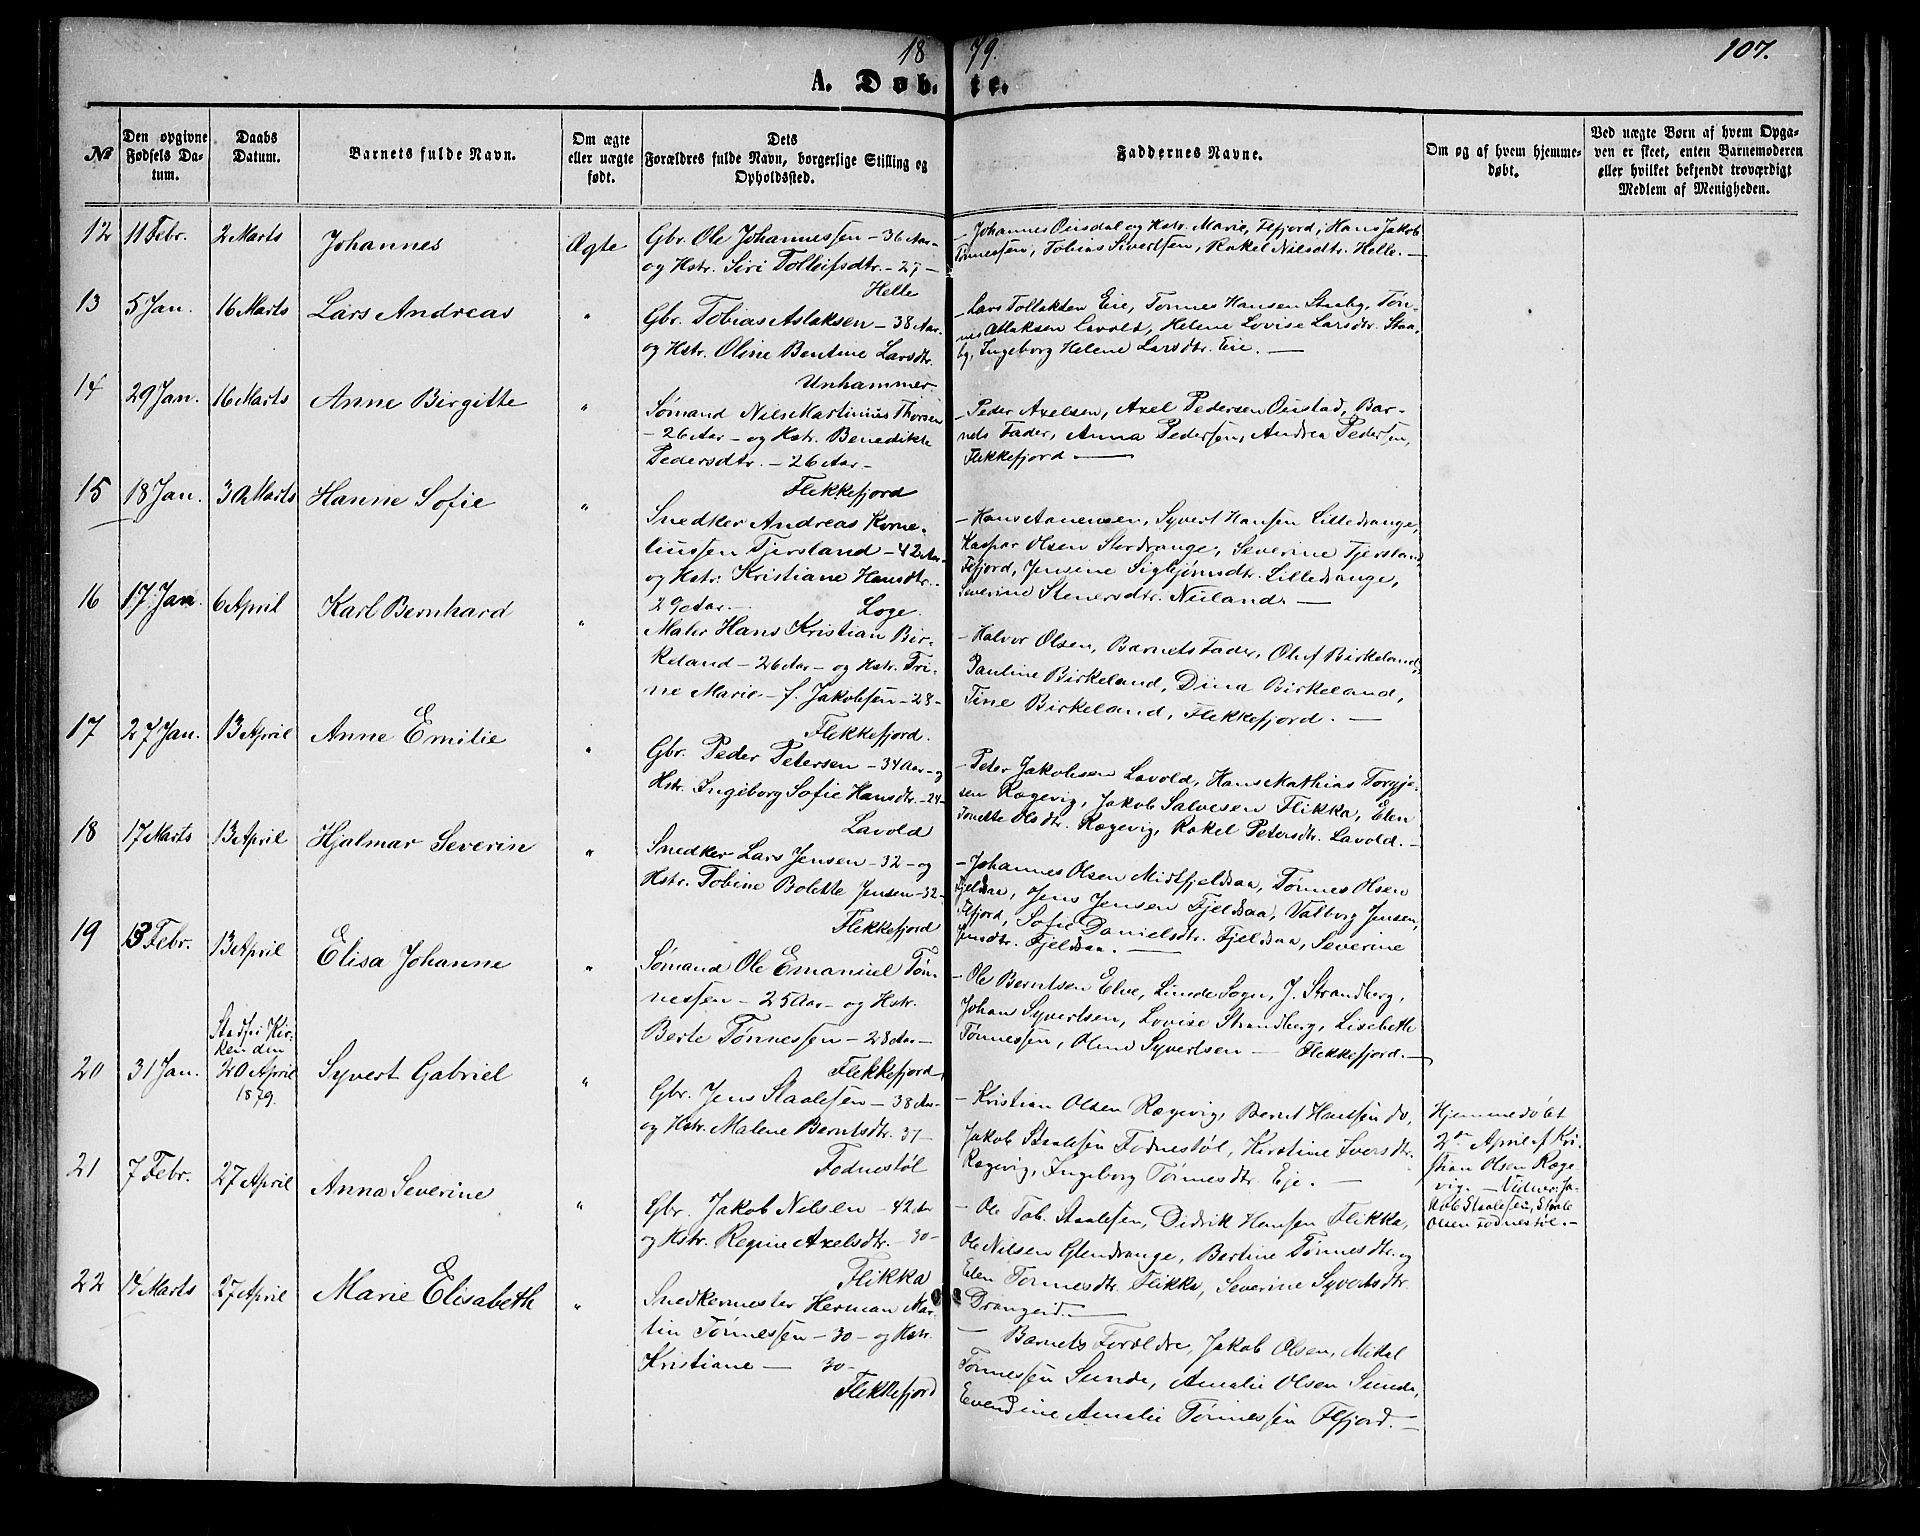 1879.
107.
A. Døbte.
No
Den opgivne Fødsels Datum.
Daabs Datum.
Barnets fulde Navn.
Om ægte eller uægte født.
Dets Forældres fulde Navn, borgerlige Stilling og Opholdssted.
Faddernes Navne.
Om og af hvem hjemmedøbt.
Ved uægte Børn af hvem Opgaven er skeet, enten Barnemoderen eller hvilket bekjendt troværdigt Medlem af Menigheden.
12 11 Febr. 2 Marts Johannes Ægte
Gbr. Ole Johannessen – 36 Aar –
og Hstr. Siri Tolleifsdtr. – 27 –
Helle
– Johannes Ousdal og Hstr. Marie, Ffjord, Hans Jakob
Tønnessen, Tobias Sivertsen, Rakel Nilsdtr. Helle. –
13 5 Jan. 16 Marts Lars Andreas "
Gbr. Tobias Aslaksen – 38 Aar –
og Hstr. Oline Bentine Larsdtr.
Unhammer
– Lars Tollaksen Eie, Tønnes Hansen Stuby, Tøn-
nes Atlaksen Lavold, Helene Lovise Larsdtr.
Ingeborg Helene Larsdtr. Eie. –
14 29 Jan. 16 Marts Anne Birgitte "
Sømand Nils Martinius Thorsen
– 26 Aar – og Hstr. Benedikte
Pedersdtr. – 26 Aar –
Flekkefjord
– Peder Axelsen, Axel Pedersen Oustad, Bar-
nets Fader, Anna Pedersen, Andrea Pedersen,
Flekkefjord –
15 18 Jan. 30 Marts Hanne Sofie "
Snedker Andreas Korne-
liussen Fjersland – 42 Aar –
og Hstr. Kristiane Hansdtr.
29 Aar. – Loge.
– Hans Aanensen, Syvert Hansen Lilledrange,
Kaspar Olsen Stordrange, Severine Fjersland,
Ffjord, Jensine Sigbjørnsdtr. Lilledrange,
Severine Stenersdtr. Nuland. –
16 17 Jan. 6 April Karl Bernhard "
Maler Hans Kristian Bir-
keland – 26 Aar – og Hstr. Tri-
ne Marie f. Jakobsen – 28 –
Flekkefjord.
– Halvor Olsen, Barnets Fader, Oluf Birkeland,
Pauline Birkeland, Dina Birkeland,
Tine Birkeland, Flekkefjord. –
17 27 Jan. 13 April Anne Emilie "
Gbr. Peder Petersen – 34 Aar – og
Hstr. Ingeborg Sofie Hansdtr. – 24 –
Lavold
– Peter Jakobsen Lavold, Hans Mathias Torgje-
sen Rægevig, Jakob Salvesen Flikka, Elen
Tonette Olsdtr. Rægevig, Rakel Petersdtr. Lavold. –
18 17 Marts 13 April Hjalmar Severin "
Snedker Lars Jensen – 32 – og
Hstr. Tobine Bolette Jensen – 32 –
Flekkefjord
– Johannes Olsen Midtfjeldsaa, Tønnes Olsen
Fjeldsaa, Jens Jensen Fjeldsaa, Valborg Jensen,
Ffjord, Sofie Danielsdtr. Fjeldsaa, Severine
Jensdtr. Fjeldsaa. –
19 13 Febr. 13 April Elisa Johanne "
Sømand Ole Emanuel Tøn-
nessen – 25 Aar – og Hstr.
Berte Tønnessen – 28 Aar –
Flekkefjord
– Ole Berntsen Elve, Lunde Sogn, J. Strandberg,
Johan Syvertsen, Lovise Strandberg, Lisebeth
Tønnessen, Oline Syvertsen – Flekkefjord. –
20 31 Jan. Stadf. i Kir-
ken den
20 April
1879. Syvert Gabriel "
Gbr. Jens Staalesen – 38 Aar –
og Hstr. Malene Berntsdtr. 37 –
Fodnestøl
– Kristian Olsen Rægevig, Bernt Hansen do,
Jakob Staalesen Fodnestøl, Kirstine Iversdtr.
Rægevig, Ingeborg Tønnesdtr. Eje. –
Hjemmedøbt
2den April af Kri-
stian Olsen Ræge-
vig. – Vidner: Ja-
kob Staalesen, Staale
Olsen Fodnestøl. –
21 7 Febr. 27 April Anna Severine "
Gbr. Jakob Nilsen – 42 Aar
og Hstr. Regine Axelsdtr. – 30 –
Flikka
– Ole Tob. Staalesen, Didrik Hansen Flikka,
Ole Nilsen Glendrange, Bertine Tønnesdtr. og
Elen Tønnesdtr. Flikka, Severine Syvertsdtr.
Drangeid. –
22 14 Marts 27 April Marie Elisabeth "
Snedkermester Herman Mar-
tin Tønnessen – 30 – og Hstr.
Kristiane – 30 –
Flekkefjord
– Barnets Forældre, Jakob Olsen, Mikal
Tønnessen Sunde, Amalie Olsen Sunde,
Evendine Amalie Tønnessen Ffjord. –